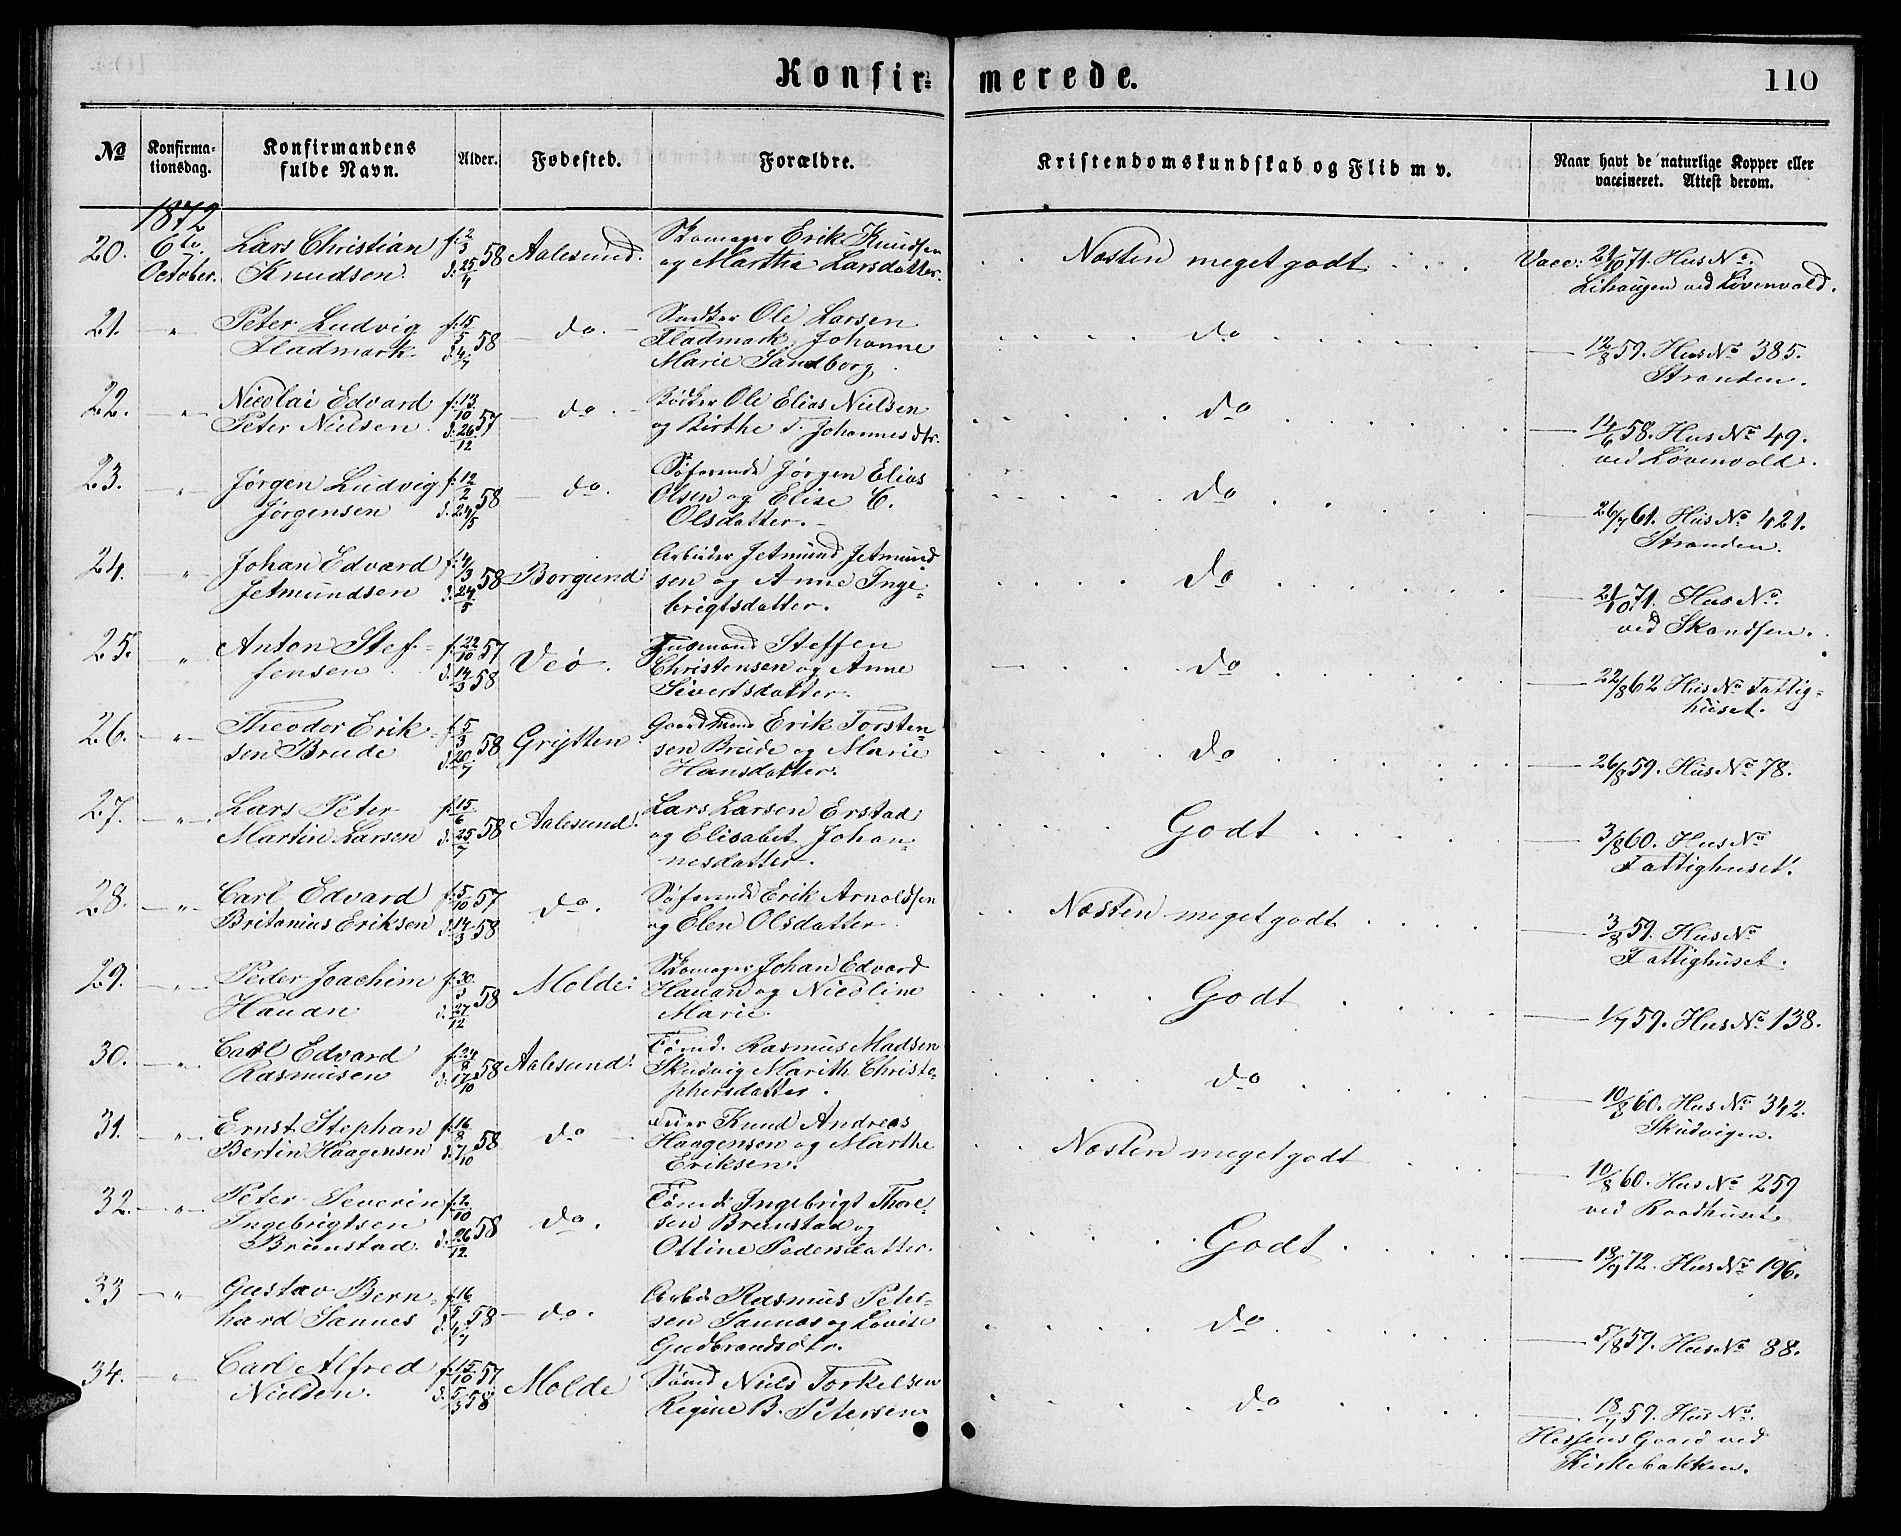 Konfir- merede. 110
No Konfirma-tionsdag. Konfirmandens fulde Navn. Alder. Fødested. Forældre. Kristendomskundskab og Flid m v. Naar havt de naturlige Kopper eller vaccineret. Attest derom.
1872
20. 6te Lars Christian f: 2/3 58 Aalesund. Skomager Erik Knudsen Næsten meget godt. Vacc: 21/10 71. Hus No.
October. Knudsen d: 25/4 og Martha Larsdatter. ved Løvenvold.
21. " Peter Ludvig f: 15/5 58 do. Ole Larsen do 12/8 59. Hus No 385.
Fladmark. d: 4/7 Fladmark, Johanne Stranden.
Marie Sandborg
22. " Nicolai Edvard f: 13/10 57 do. Bødker Ole Elias Nielsen do 14/6 58. Hus No 49.
Peter Nielsen d: 26/12 og Birthe T. Johannesdtr. ved Løvenvold.
23. " Jørgen Ludvig f: 12/2 58 do. Søfarende Jørgen Elias do 26/7 61. Hus No 421.
Jørgensen d: 24/5 Olsen og Elise C. Stranden.
Olsdatter.
24. " Johan Edvard f: 4/3 58 Borgund. Arbeider Jetmund Jetmund do 21/10 71. Hus No.
Jetmundsen d: 24/5 sen og Anne Inge- ved Skandsen.
brigtsdatter.
25. " Anton Stef- f: 22/10 57 Veø. Husmand Steffen do 22/8 62 Hus No Fattig-
fensen d: 14/3 58 Christensen og Anne huset.
Sivertsdatter.
26. " Theodor Erik- f: 5/3 58 Grytten. Gaardmand Erik Torsten- do 26/8 59. Hus No 78.
sen Brude d: 20/7 sen Brude og Marie
Hansdatter.
27. " Lars Peter f: 15/6 58 Aalesund. Lars Larsen Erstad Godt 3/8 60. Hus No
Martin Larsen d: 25/7 og Elisabet Johan- Fattighuset.
nesdatter.
28. " Carl Edvard f: 5/10 57 do. Søfarende Erik Arnoldsen Næsten meget godt 3/8 59. Hus No
Britanius Eriksen d: 14/3 58 og Elen Olsdatter Fattighuset.
29. " Peder Joachim f: 30/3 58 Molde. Skomager Johan Edvard Godt 1/7 59. Hus No 138.
Hauan d: 27/12 Hauan og Nicoline
Marie.
30. " Carl Edvard f: 24/8 58 Aalesund. Tømd. Rasmus Madsen do 10/8 60. Hus No 342.
Rasmusen d: 17/10 Skudvig Marith Christo- Skudvigen.
phersdatter.
31. " Ernst Stephan f: 16/8 58 do Knud Andreas Næsten meget godt 10/8 60. Hus No 259
Bertin Haagensen d: 7/10 Haagensen og Marthe ved Raadhuset.
Eriksen.
32. " Peter Severin f: 2/10 58 do. Tømd. Ingebrigt Thore- Godt 18/9 72. Hus No 196.
Ingebrigtsen d: 26/12 sen Brunstad og
Brunstad. Ottine Pedersdatter.
33 " Gustav Bern- f: 16/5 58 do. Arbeid. Rasmus Peter- do 5/8 59. Hus No 88.
hard Sannes d: 4/7 sen Sannes og Lovise
Gudbrandsdtr.
34. " Carl Alfred f: 15/10 57 Molde Sømd Niels Torkelsen do 18/7 59. Hus No.
Nielsen. d: 5/3 58 Regine B. Petersen. Hessens Gaard ved
Kirkebakken.